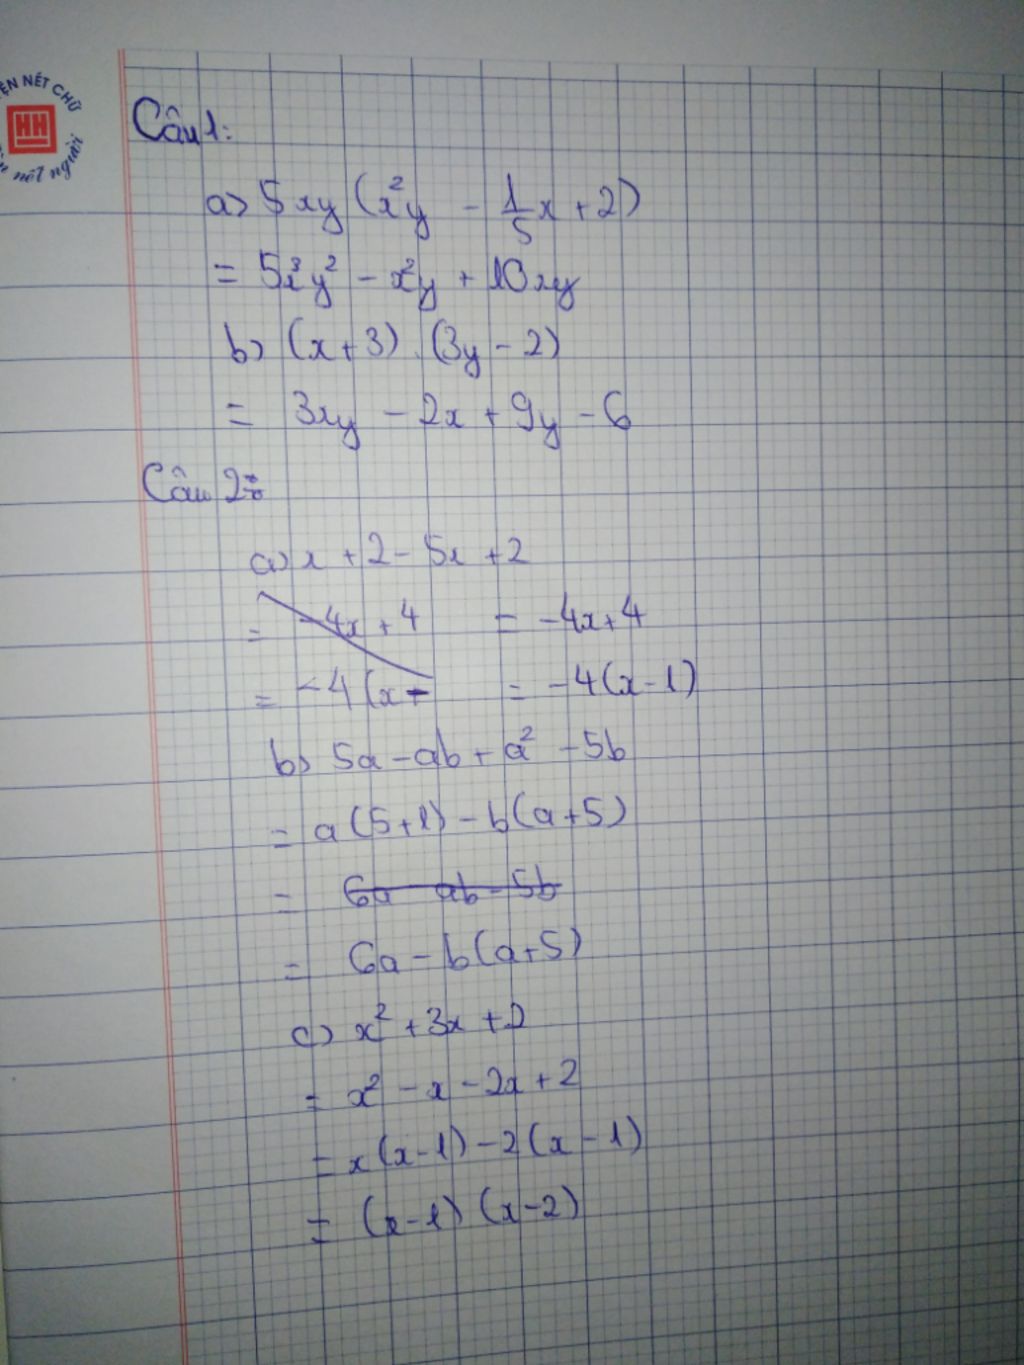 ỆN NẾT CHỮ
HH
nết người
Câu 1:
a) 5xy (x²y - 1/5 x + 2)
= 5x³y² - x²y + 10xy
b) (x+3).(3y-2)
= 3xy - 2x + 9y - 6
Câu 2:
a) x + 2 - 5x + 2
= -4x + 4 = -4x + 4
= -4(x - = -4(x-1)
b) 5a - ab + a² - 5b
= a(5+1) - b(a+5)
= 6a ab - 5b
= 6a - b(a+5)
c) x² + 3x + 2
= x² - x - 2x + 2
= x(x-1) - 2(x-1)
= (x-1) (x-2)